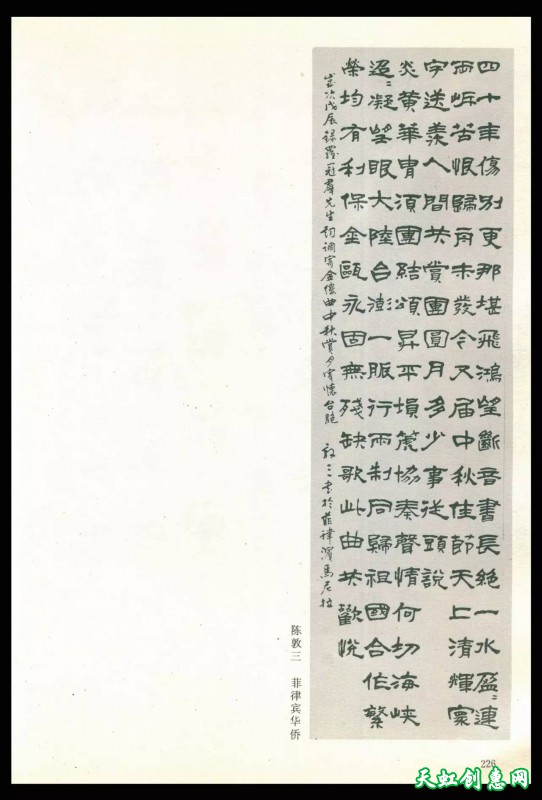 四十年傷別更那堪飛鴻望斷音書長絕一水盈〻連
兩岍苦恨歸舟未發今又届中秋佳節天上清輝寰
宇送羨人間共賞團圓月多少事從頭說
炎黃華冑須團結頌昇平塤篪協奏聲情何切海峽
迢〻凝望眼大陸台澎一脈行兩制同歸祖國合作繁
榮均有利保金甌永固無殘缺歌此曲共歡悅
歲次戊辰錄羅冠群先生詞調寄金縷曲中秋賞月寄懷台胞 敦三書於菲律濱馬尼拉
陈敦三 菲律宾华侨
226
天虹创惠网